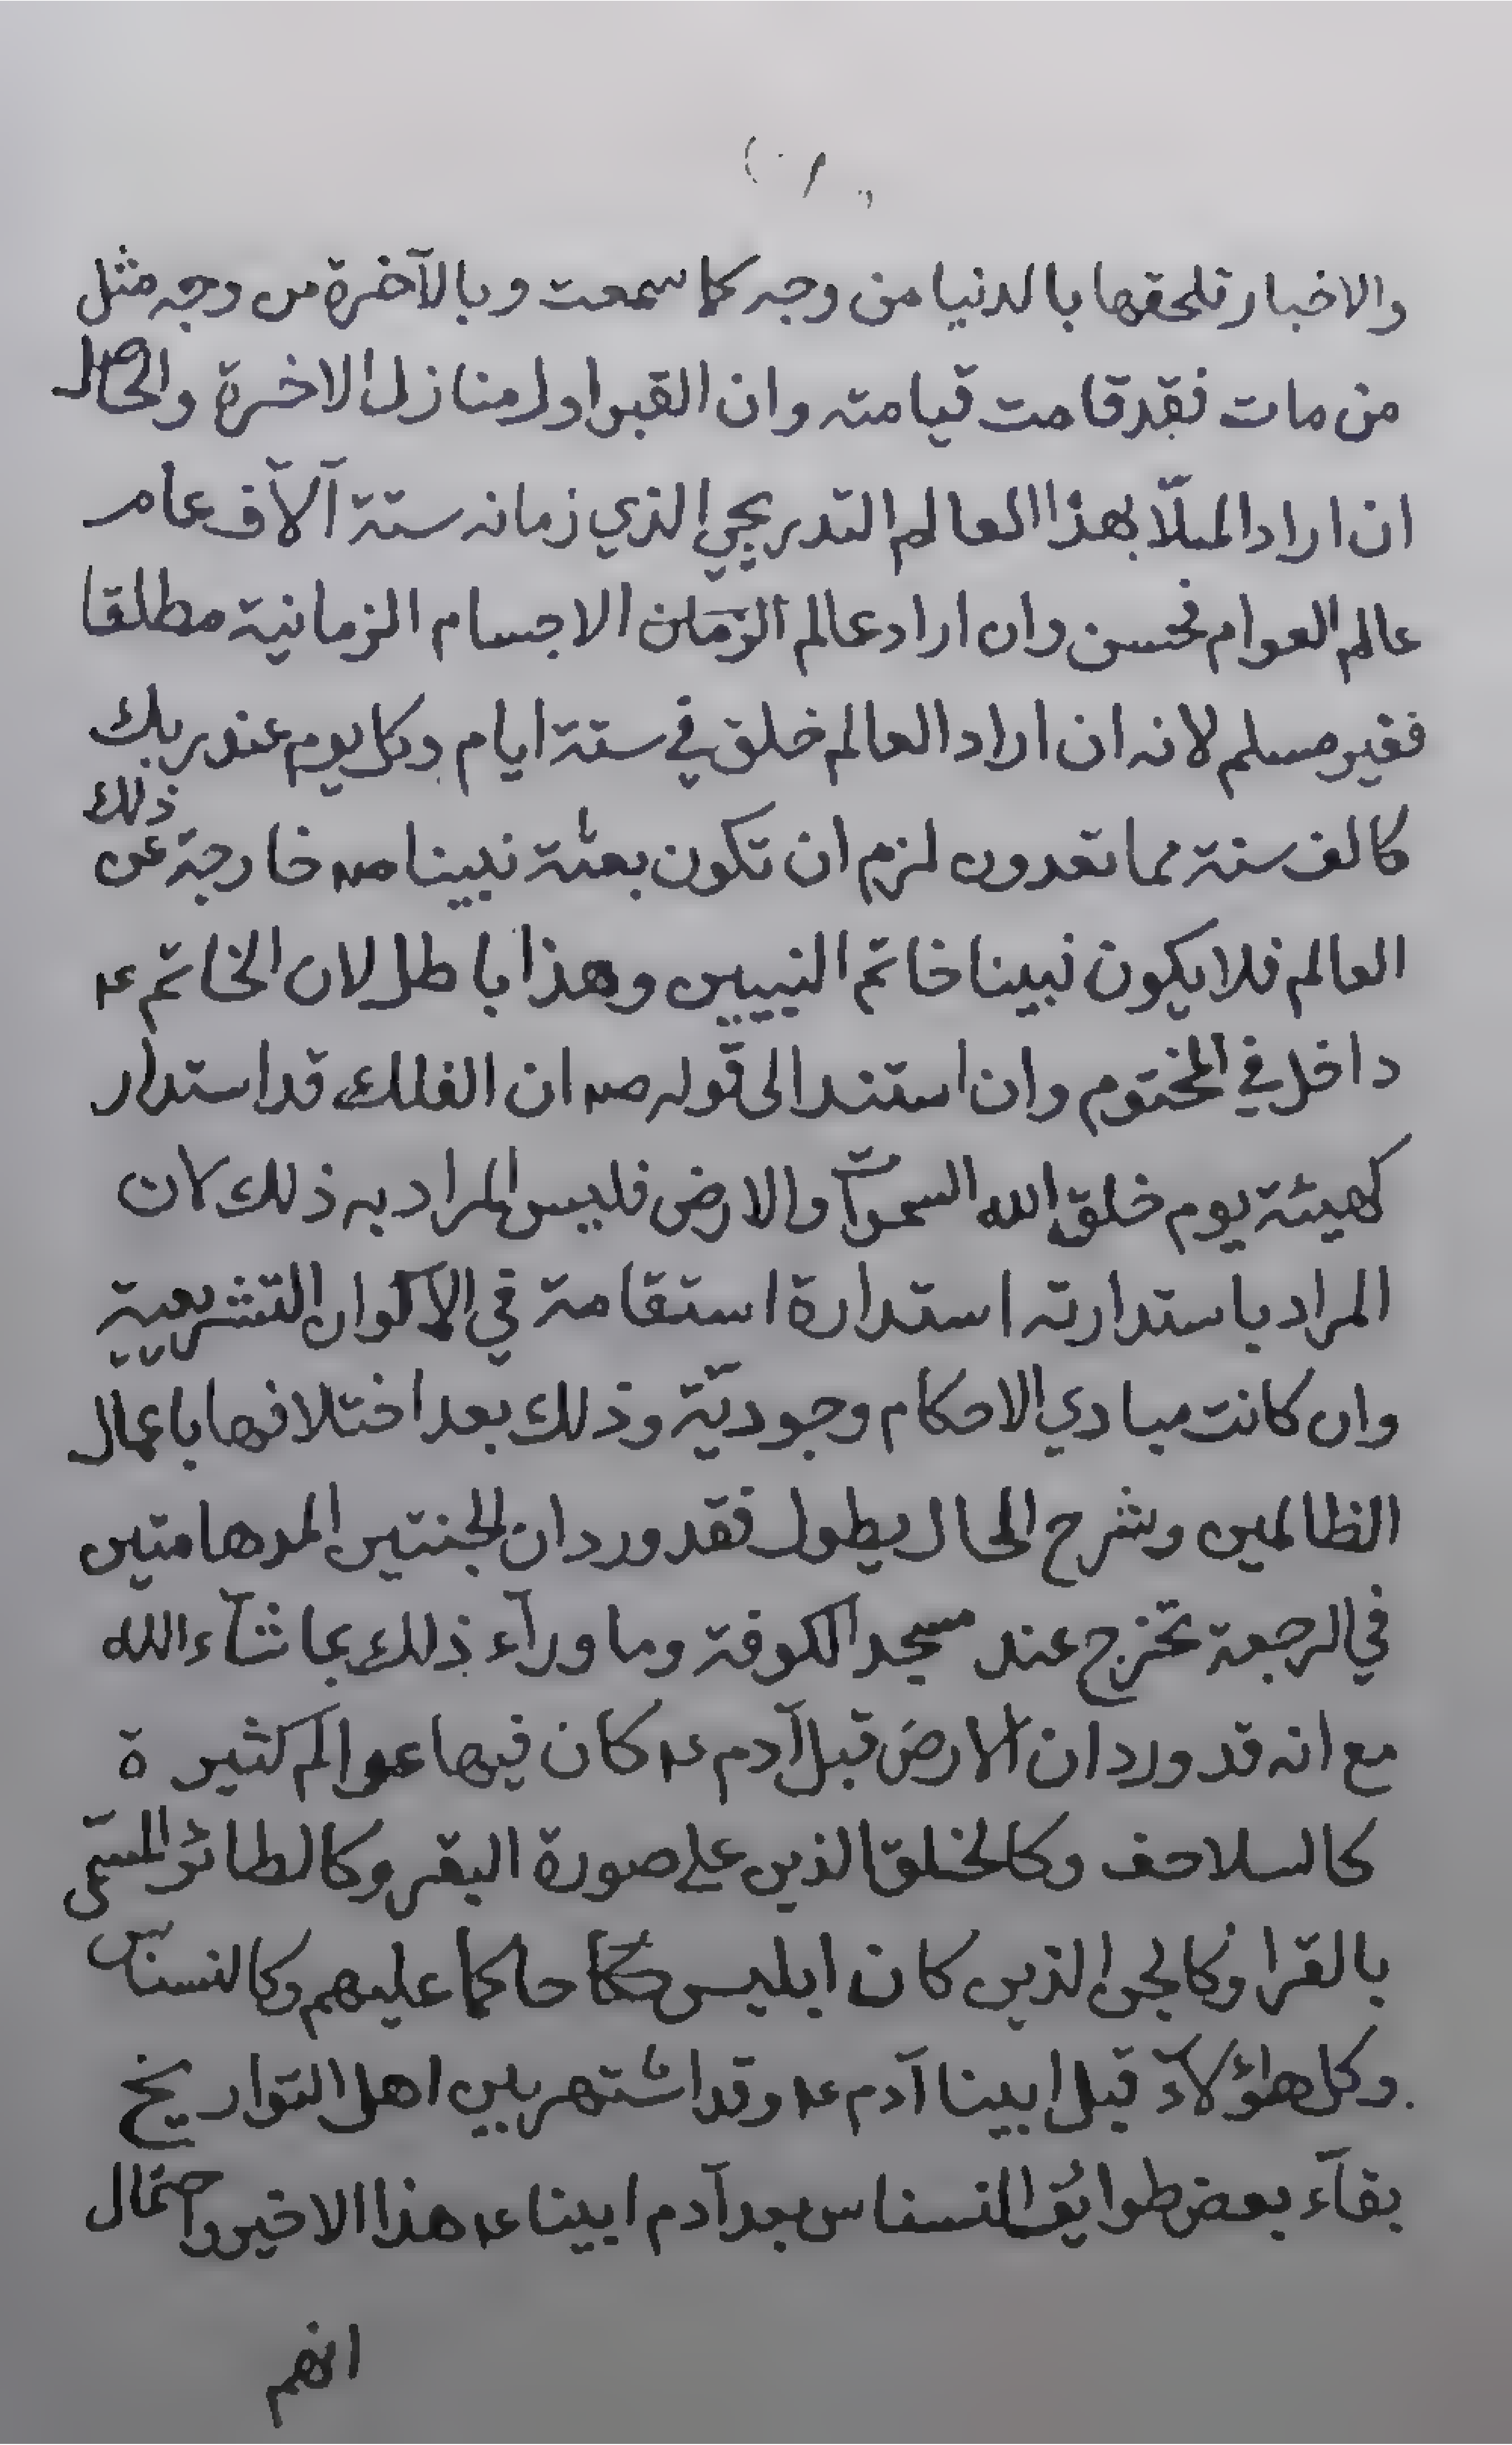 والاخبار تلحقها بالدنيا من وجه كما سمعت وبالآخرة من وجه مثل
من مات فقد قامت قيامته وان القبر اول منازل الاخرة والحاصل
ان اراد الملّا بهذا العالم التدريجي الذي زمانه ستة آلآف عام
عالم العوام فحسن وان اراد عالم الاجسام الزمانية مطلقا
فغير مسلم لانه ان اراد العالم خلق في ستة ايام وكل يوم عند ربك
كالف سنة مما تعدون لزم ان تكون بعثة نبينا صه خارجة عن ذلك
العالم فلا يكون نبينا خاتم النبيين وهذا باطل لان الخاتم عه
داخل في المختوم وان استند الى قوله صه ان الفلك قد استدار
كهيئة يوم خلق الله السموآت والارض فليس المراد به ذلك لان
المراد باستدارته استدارة استقامة في الاكوان التشريعية
وان كانت مبادي الاحكام وجوديّة وذلك بعد اختلافها باعمال
الظالمين وشرح الحال يطول فقد ورد ان الجنتين المدهامتين
في الرجعة تخرج عند مسجد الكوفة وما ورآء ذلك بما شآء الله
مع انه قد ورد ان الارض قبل آدم عه كان فيها عوالم كثيرة
كالسلاحف وكالخلق الذين على صورة البقر وكالطائر المسمّى
بالقرا وكالجن الذين كان ابليس حاكما عليهم وكالنسناس
وكل هؤلآء قبل ابينا آدم عه وقد اشتهر بين اهل التواريخ
بقآء بعض طوايف النسناس بعد آدم ابينا عه هذا الاخير واحتمال
انهم